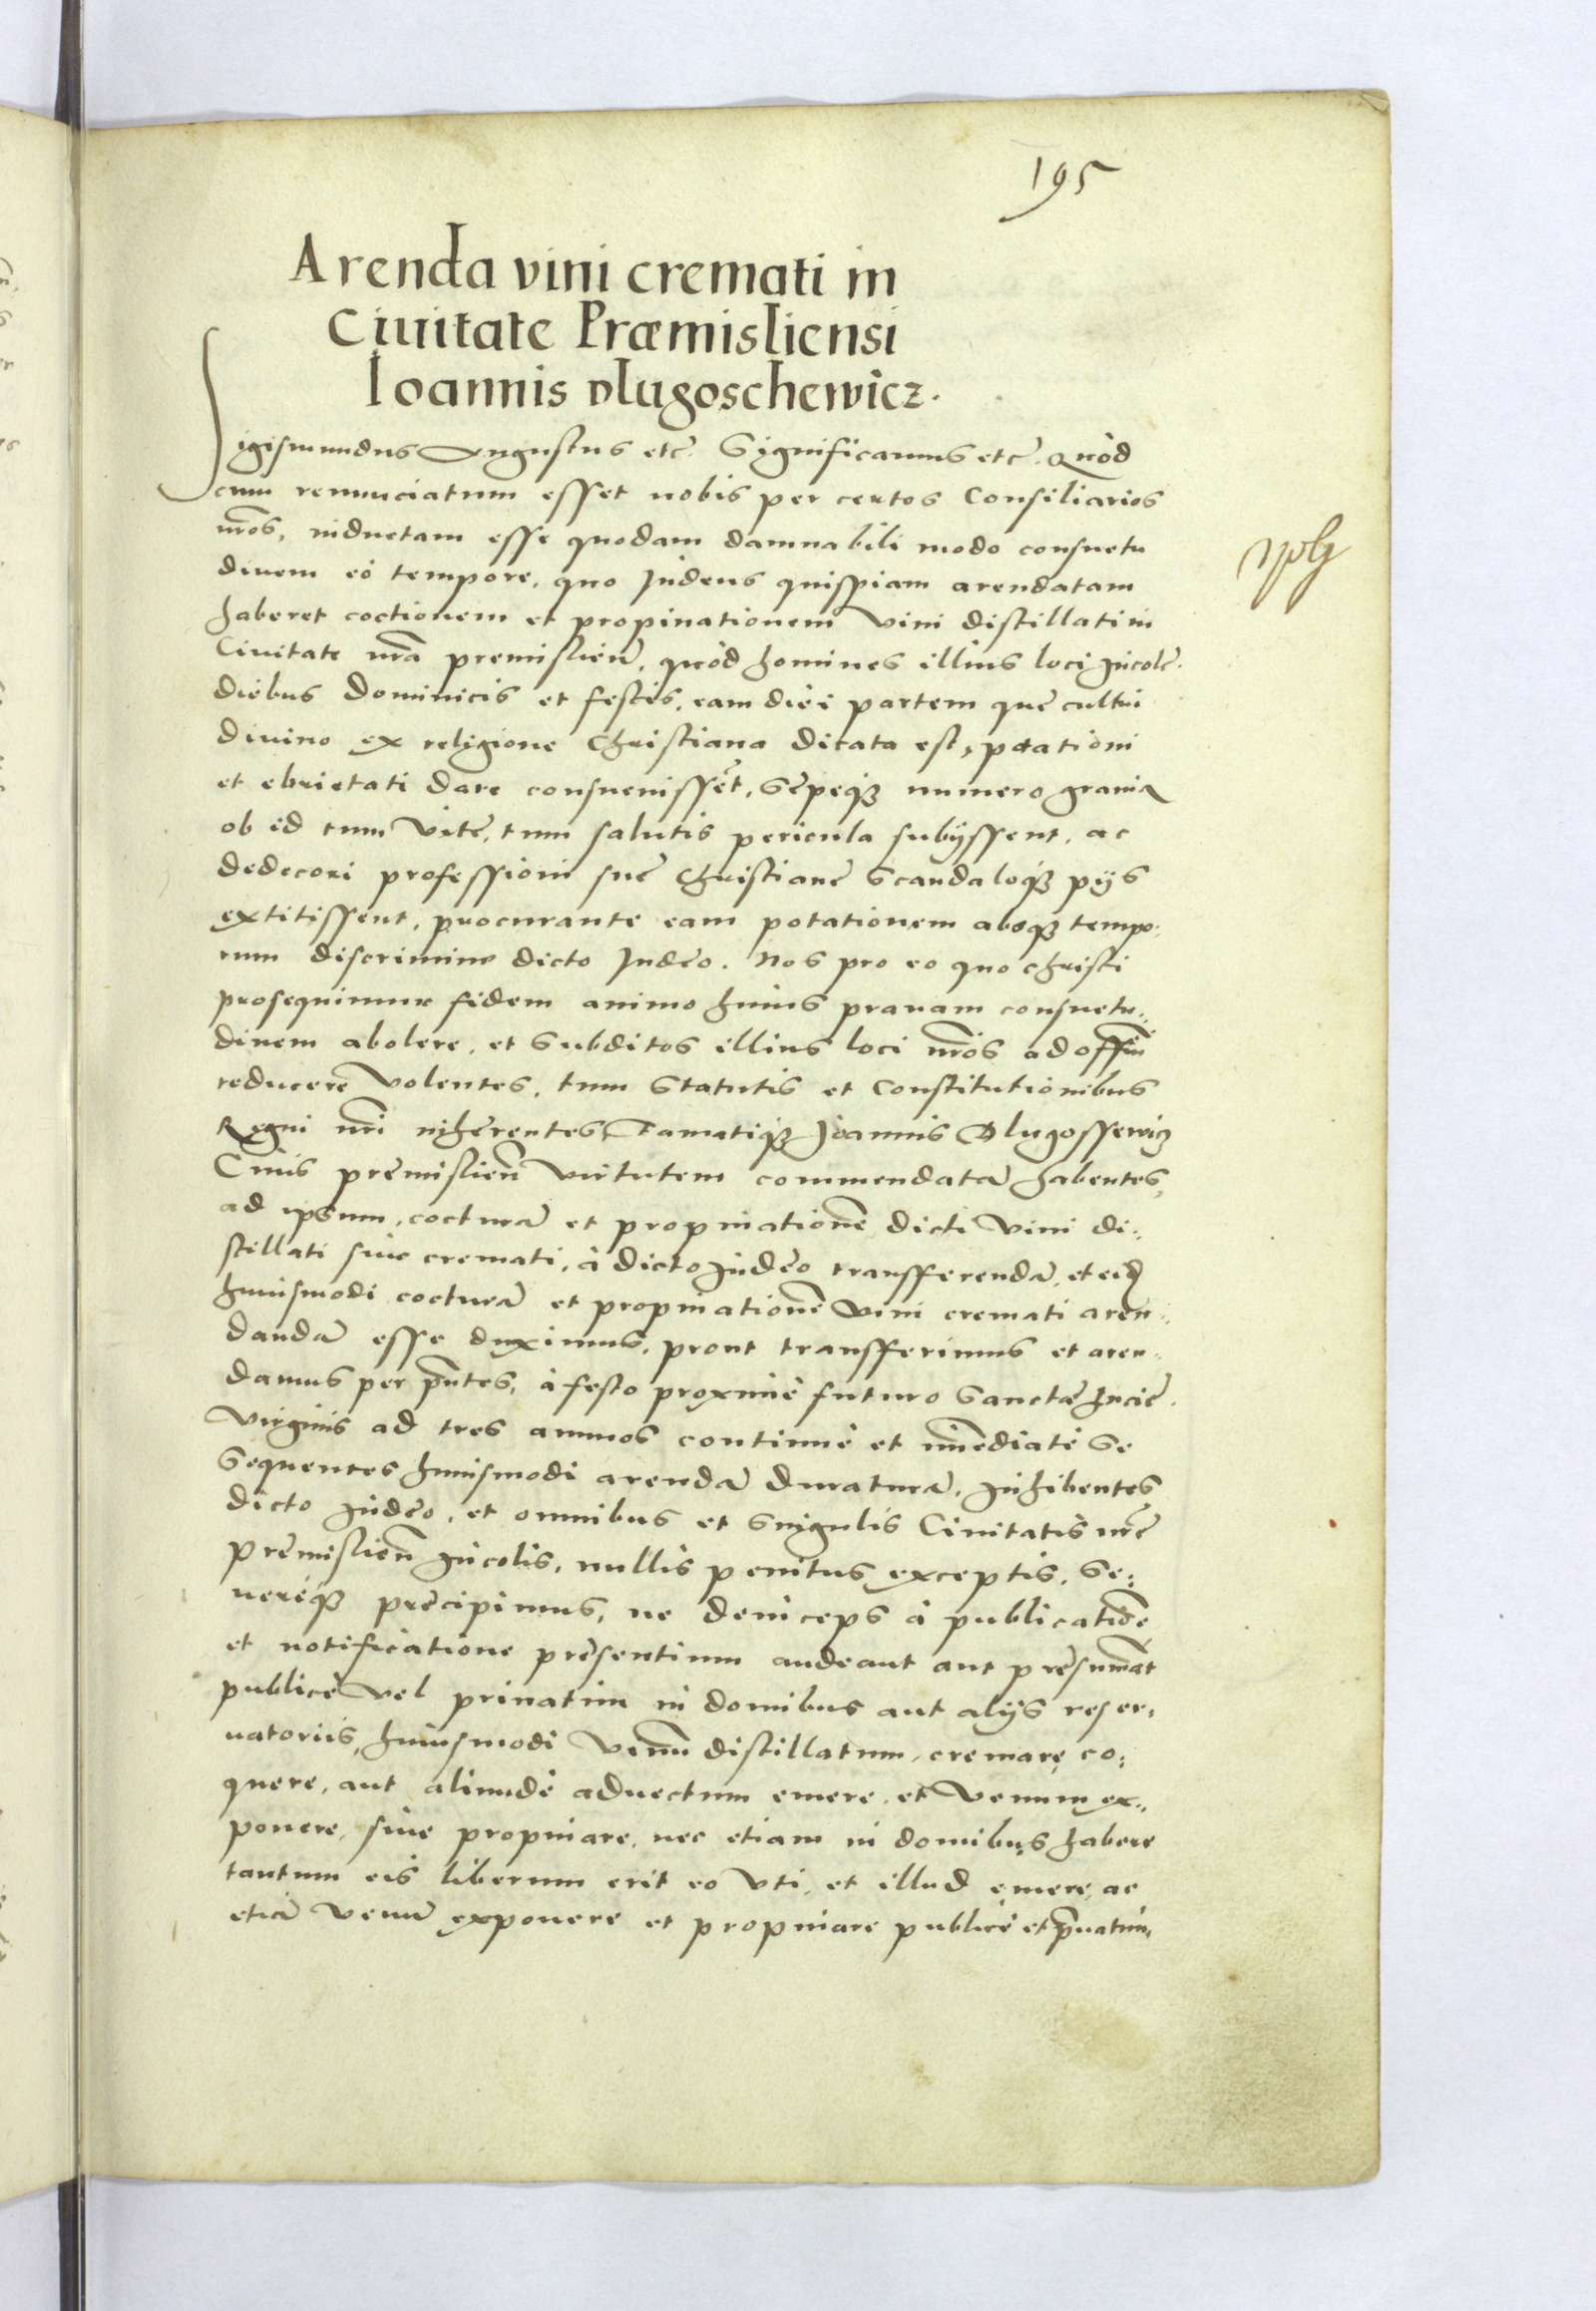 195
Arenda vini cremati in
Ciuitate Præmisliensi
Ioannis Dlugoschewicz.
Sigismundus Augustus etc. Significamus etc. Quòd
cum renunciatum esset nobis per certos Consiliarios
nr̃os, inductam esse quodam damnabili modo consuetu
dinem eò tempore, quo Judeus quispiam arendatam
haberet coctionem et propinationem vini distillati in
Ciuitate nr̃a premislien̄, quòd homines illius loci Incolę
diebus Dominicis et festis, eam diei partem quę cultui
diuino ex religione Christiana dicata est, potationi
et ebrietati dare consueuissẽt, sępeqꝫ numero grauia
ob id tum vitę, tum salutis pericula subyssent, ac
dedecori professioni suę Christianę scandaloqꝫ pys
extitissent, procurante eam potationem absqꝫ tempo:
rum discrimine dicto Judęo. Nos pro eo quo Christi
prosequimur fidem animo huius prauam consuetu:
dinem abolere, et subditos illius loci nr̃os ad offm̄
reducere volentes, tum statutis et Constitutionibus
Regni nr̃i inhęrentes, Famatiqꝫ Joannis Dlugossewicz
Ciuis pręmislien̄ virtutem commendatã habentes,
ad ipsum, cocturã et propinationẽ dicti vini di:
stillati siue cremati, à dicto Judęo transferendã, et eid
huiusmodi cocturã et propinationẽ vini cremati aren:
dandã esse duximus, prout transferimus et aren:
damus per pñtes, à festo proximè futuro Sanctæ Lucię
virginis ad tres annos continuè et imẽdiatè se
sequentes huiusmodi arendã duraturã, Inhibentes
dicto Judęo, et omnibus et singulis Ciuitatis nr̃ę
pręmislien̄ Incolis, nullis penitus exceptis, se:
uerèqꝫ pręcipimus, ne deinceps à publicatiõe
et notificatione pręsentium audeant aut pręsumãt
publicè vel priuatim in domibus aut alys reser:
uatoriis, huiusmodi vinũ distillatum, cremare, co:
quere, aut aliundè aduectum emere, et venum ex:
ponere, siue propinare, nec etiam in domibus habere
tantum eis liberum erit eo vti, et illud emere, ac
etiã venũ exponere et propinare publicè et priuatim,